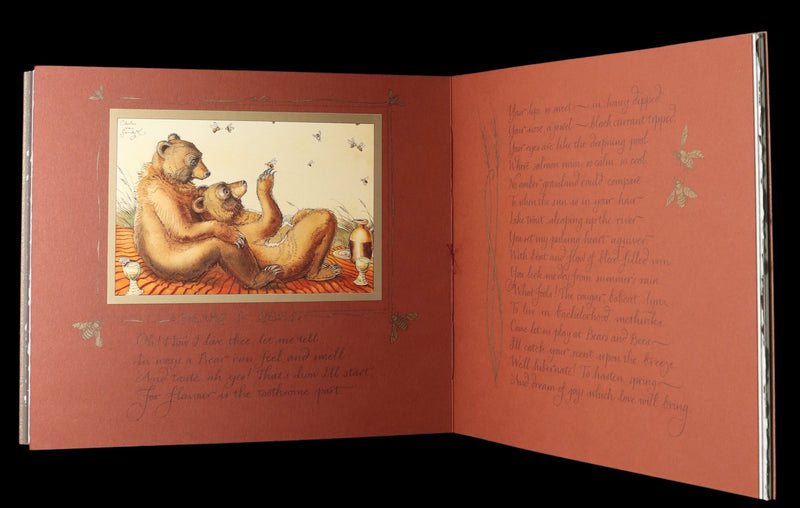 Oh! How I love thee, let me tell
In ways a Bear can feel and smell
And taste, ah yes! That's how I'll start,
For flavour is the toothsome part.
Your lips so sweet — in honey dipped
Your nose, a jewel — black currant tipped
Your eyes are like the deepening pool
Where salmon swim, so calm, so cool
No amber grassland could compare
To when the sun is in your hair
Like trout, a-leaping up the river
You set my pulsing heart a quiver
With beat and flow of blood filled
You lick me dry from summer's rain
What fools! The cougar, bobcat, lynx
To live in bachelorhood methinks
Come let us play at Bears and Bees
I'll catch your scent upon the breeze
We'll hibernate! To hasten spring
And dream of joys which love will bring.